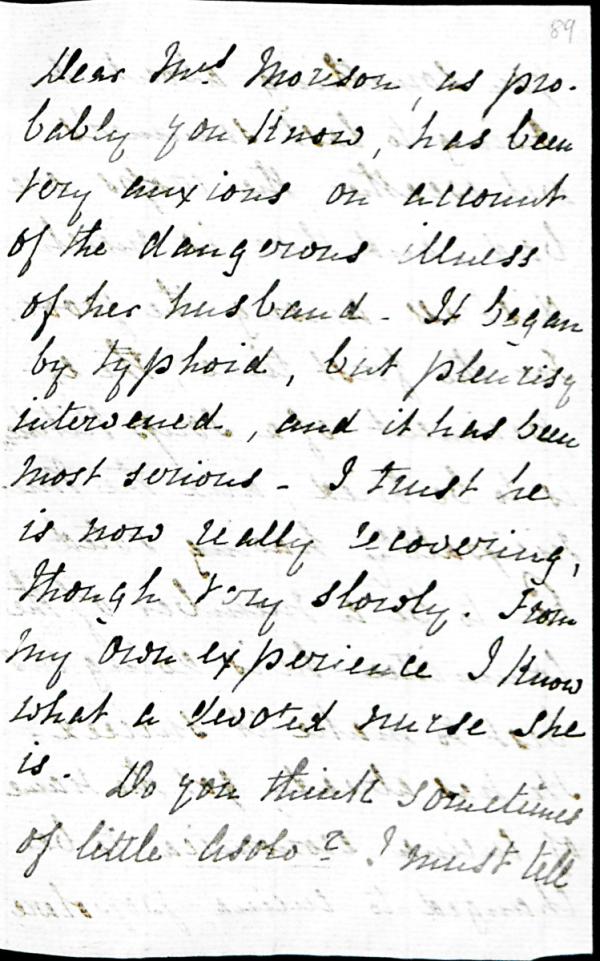 89
Dear Mrs Morison, as pro-
bably you know, has been
very anxious on account
of the dangerous illness
of her husband - It began
by typhoid, but pleurisy
intervened, and it has been
most serious - I trust he
is now really recovering,
though very slowly. From
my own experience I know
what a devoted nurse she
is. Do you think sometimes
of little Asolo? I must tell